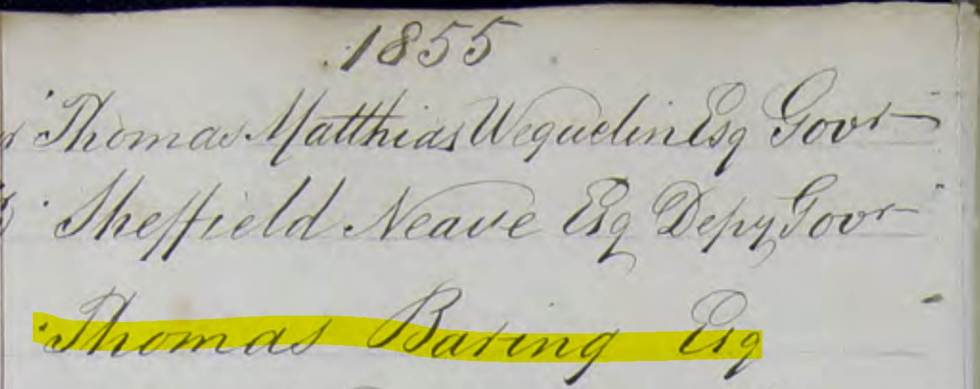 1855
Thomas Matthias Weguelin Esq Govr
Sheffield Neave Esq Depy Govr
Thomas Baring Esq